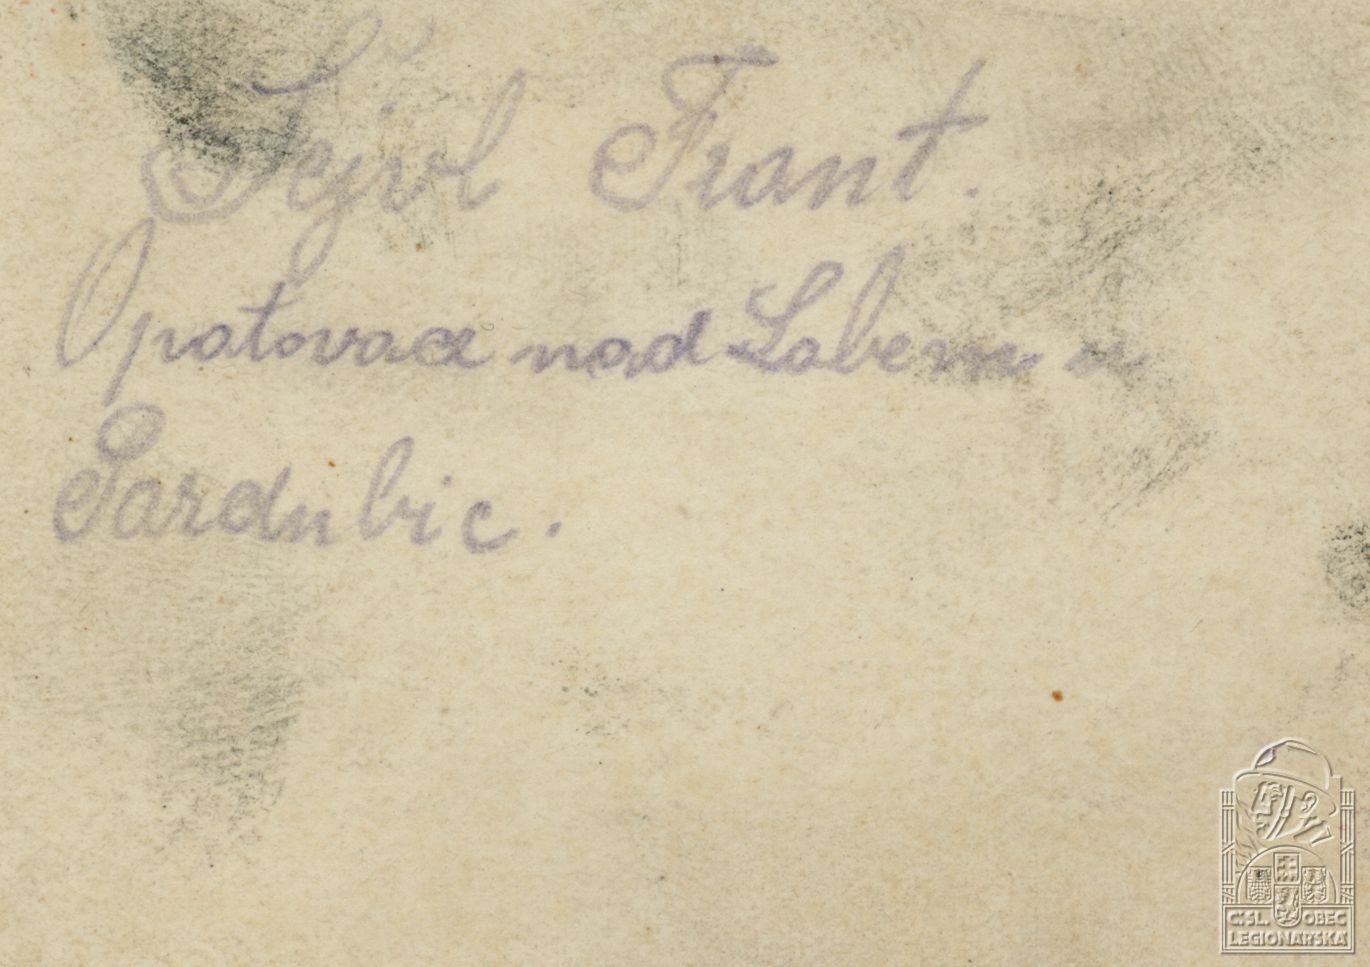 Šejvl Frant.
Opatovace nad Labem u
Pardubic.
Č.SL. OBEC
LEGIONÁŘSKÁ